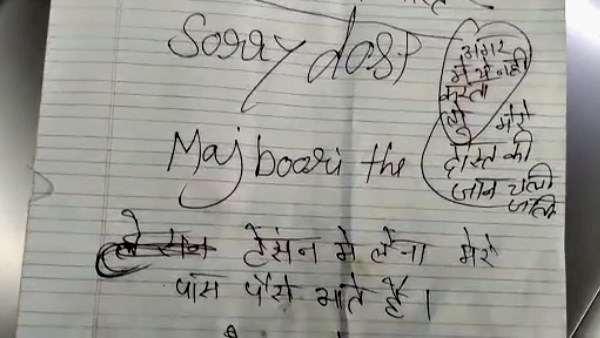 Soray dosp
अगर
मे ये नही
करता
तो मेरे
दोस्त की
जान चली
जाति
Majboari the
टेसंन मे लेना मेरे
पास पैसे आते है।